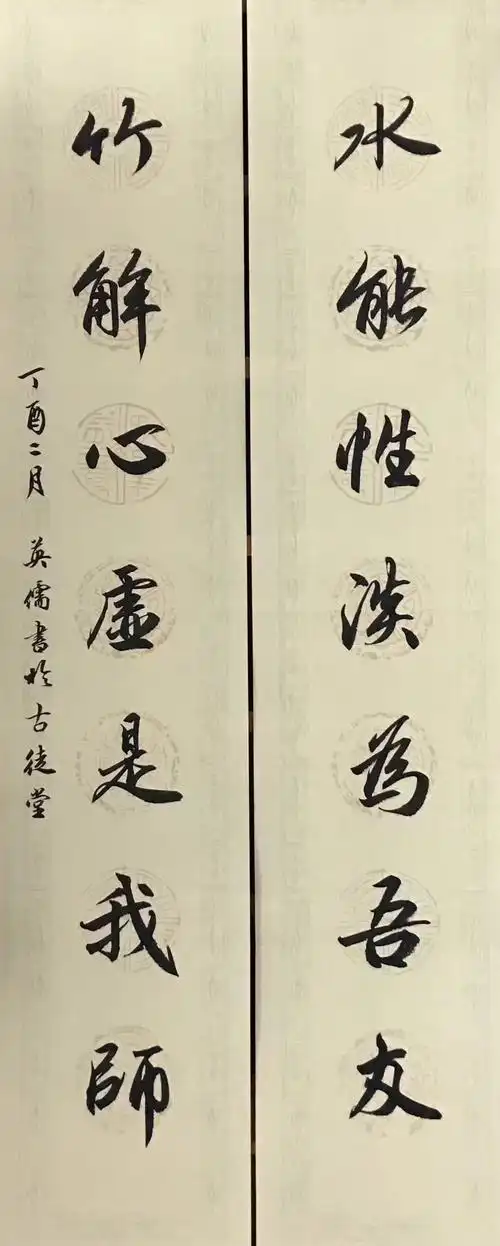 水能性淡為吾友
竹解心虛是我師
丁酉二月 英儒書於古徒堂